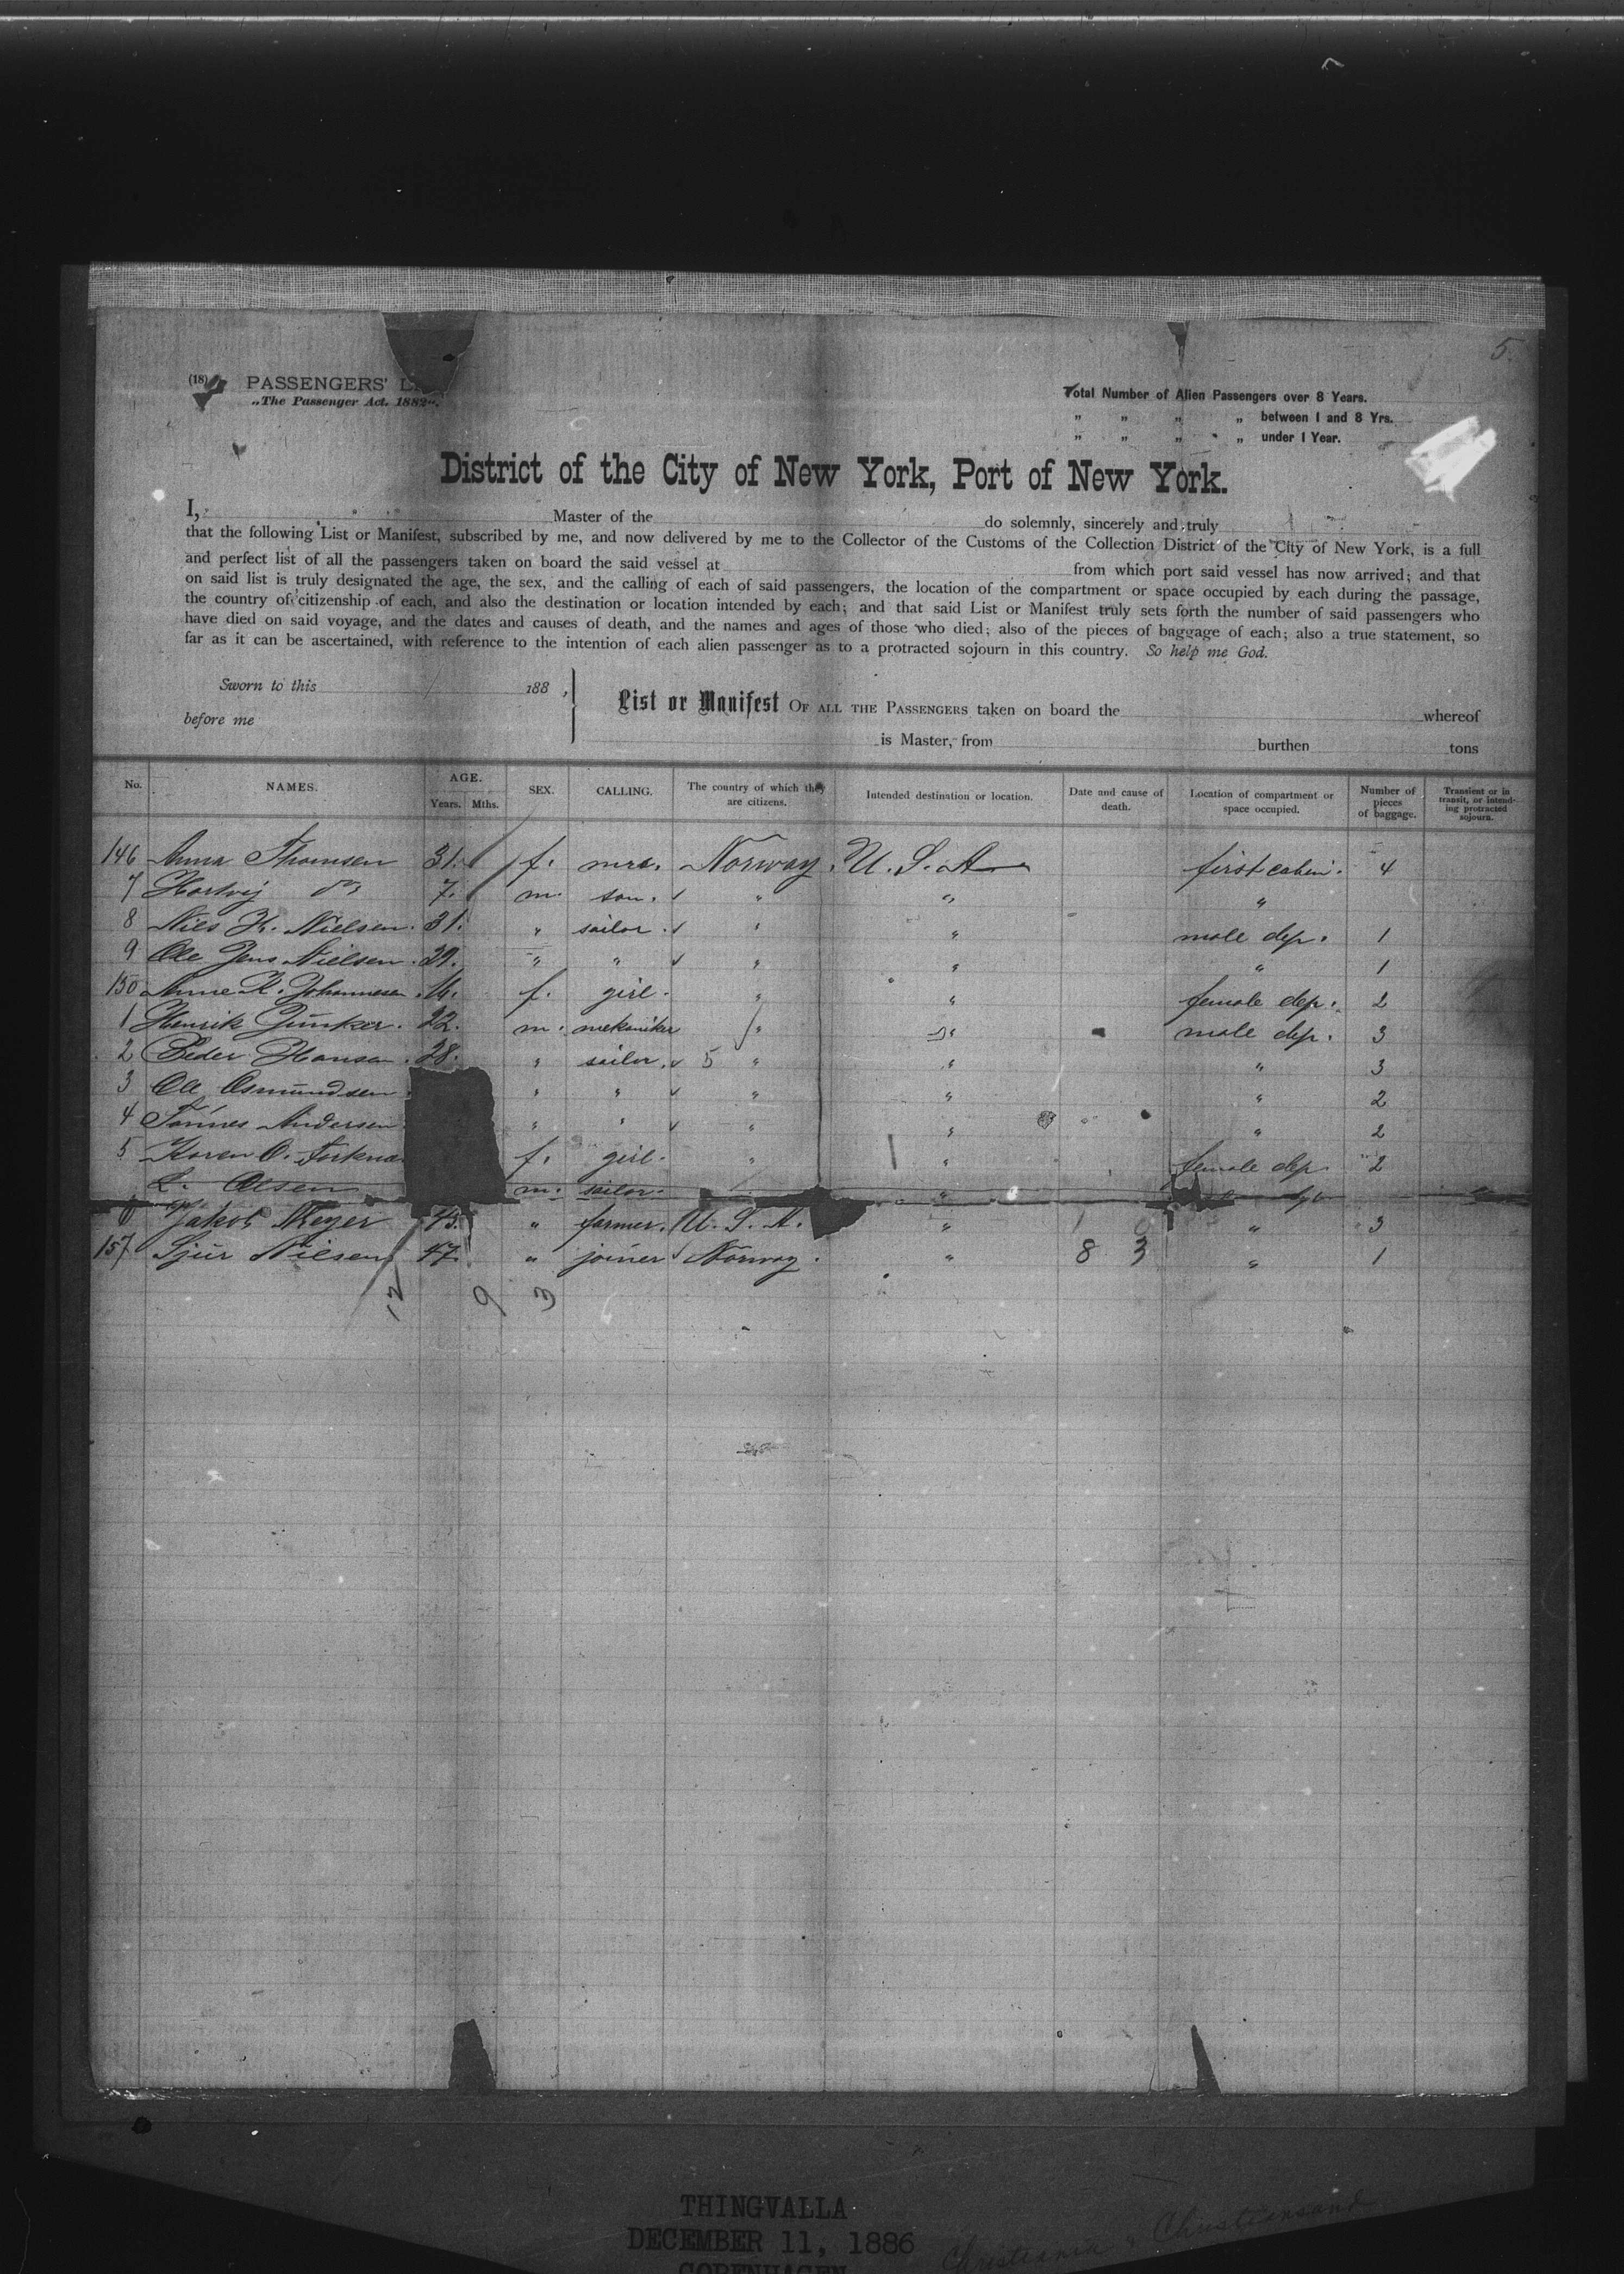 5.
(18) PASSENGERS' L
„The Passenger Act. 1882“.
Total Number of Alien Passengers over 8 Years.
„ „ „ „ between 1 and 8 Yrs.
„ „ „ „ under 1 Year.
District of the City of New York, Port of New York.
I, Master of the do solemnly, sincerely and truly
that the following List or Manifest, subscribed by me, and now delivered by me to the Collector of the Customs of the Collection District of the City of New York, is a full
and perfect list of all the passengers taken on board the said vessel at from which port said vessel has now arrived; and that
on said list is truly designated the age, the sex, and the calling of each of said passengers, the location of the compartment or space occupied by each during the passage,
the country of citizenship of each, and also the destination or location intended by each; and that said List or Manifest truly sets forth the number of said passengers who
have died on said voyage, and the dates and causes of death, and the names and ages of those who died; also of the pieces of baggage of each; also a true statement, so
far as it can be ascertained, with reference to the intention of each alien passenger as to a protracted sojourn in this country. So help me God.
Sworn to this 188 ,
before me
List or Manifest OF ALL THE PASSENGERS taken on board the whereof
is Master, from burthen tons
No. NAMES. AGE. Years. Mths. SEX. CALLING. The country of which they are citizens. Intended destination or location. Date and cause of death. Location of compartment or space occupied. Number of pieces of baggage. Transient or in transit, or intending protracted sojourn.
146 Anna Thomsen 31. f. mrs. Norway. U. S. A first cabin. 4
7 do 7. m. son. " " "
8 Nils H. Nielsen. 31. " sailor. " " male dep. 1
9 Ole Jens Nielsen. 29. " " " " " 1
150 Anne K. Johannesen. 16. f. girl. " " female dep. 2
1 Henrik Junker. 22. m. mekaniker " " male dep. 3
2 Peder Hansen. 28. " sailor. 5 " " " 3
3 Ole Osmundsen " " " " " 2
4 Tønnes Andersen " " " " " 2
5 Karen O. f. girl. " " female dep. 2
L. Olsen m. sailor. "
6 Jakob Meyer 45. " farmer. U. S. A. " " 3
157 Sjur Nilsen 47. " joiner Norway. " 8 3 " 1
12 9 3
THINGVALLA
DECEMBER 11, 1886
COPENHAGEN
Christiania Christiansand